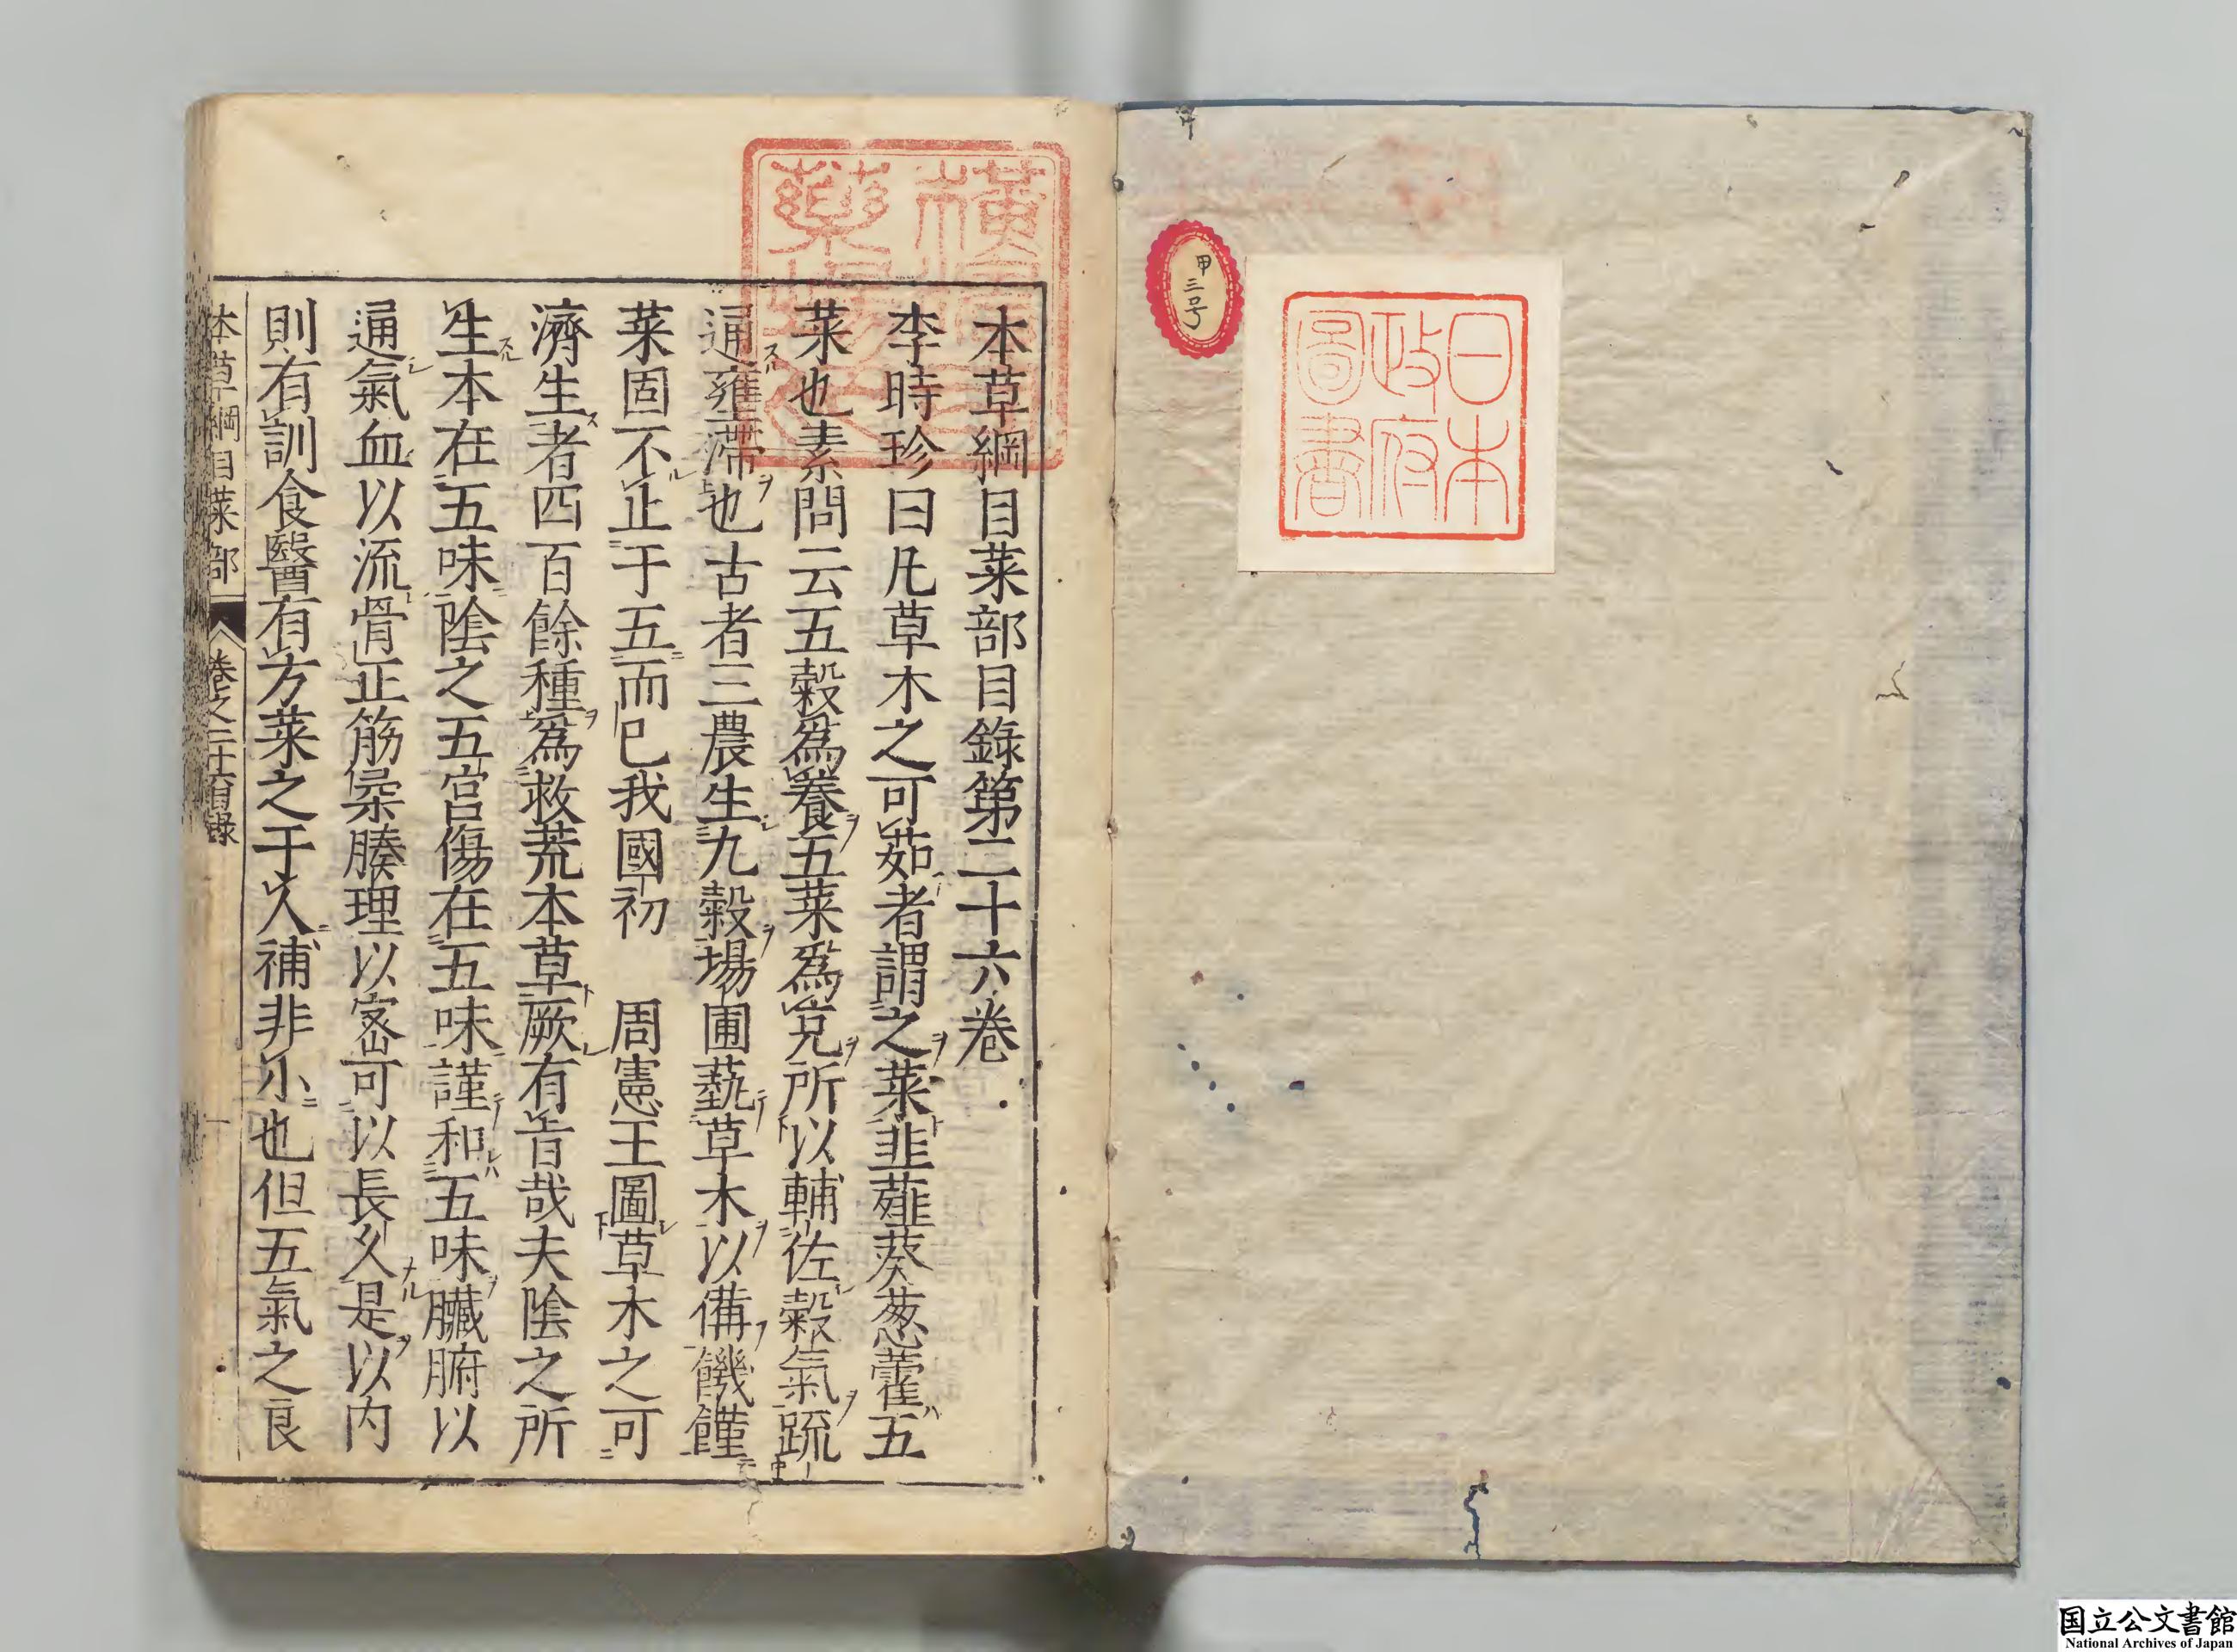 甲三号
日本
政府
圖書
本草綱目菜部目錄第二十六卷
李時珍曰凡草木之可茹者謂之菜韭薤葵葱藿五
菜也素問云五穀爲養五菜爲充所以輔佐穀氣疏
通壅滯也古者三農生九穀場圃蓺草木以備饑饉
菜固不止于五而已我國初　周憲王圖草木之可
濟生者四百餘種爲救荒本草厥有旨哉夫陰之所
生本在五味陰之五宮傷在五味謹和五味臟腑以
通氣血以流骨正筋柔腠理以密可以長久是以内
則有訓食醫有方菜之于人補非小也但五氣之良
本草綱目菜部　卷之二十六目錄　一
国立公文書館
National Archives of Japan